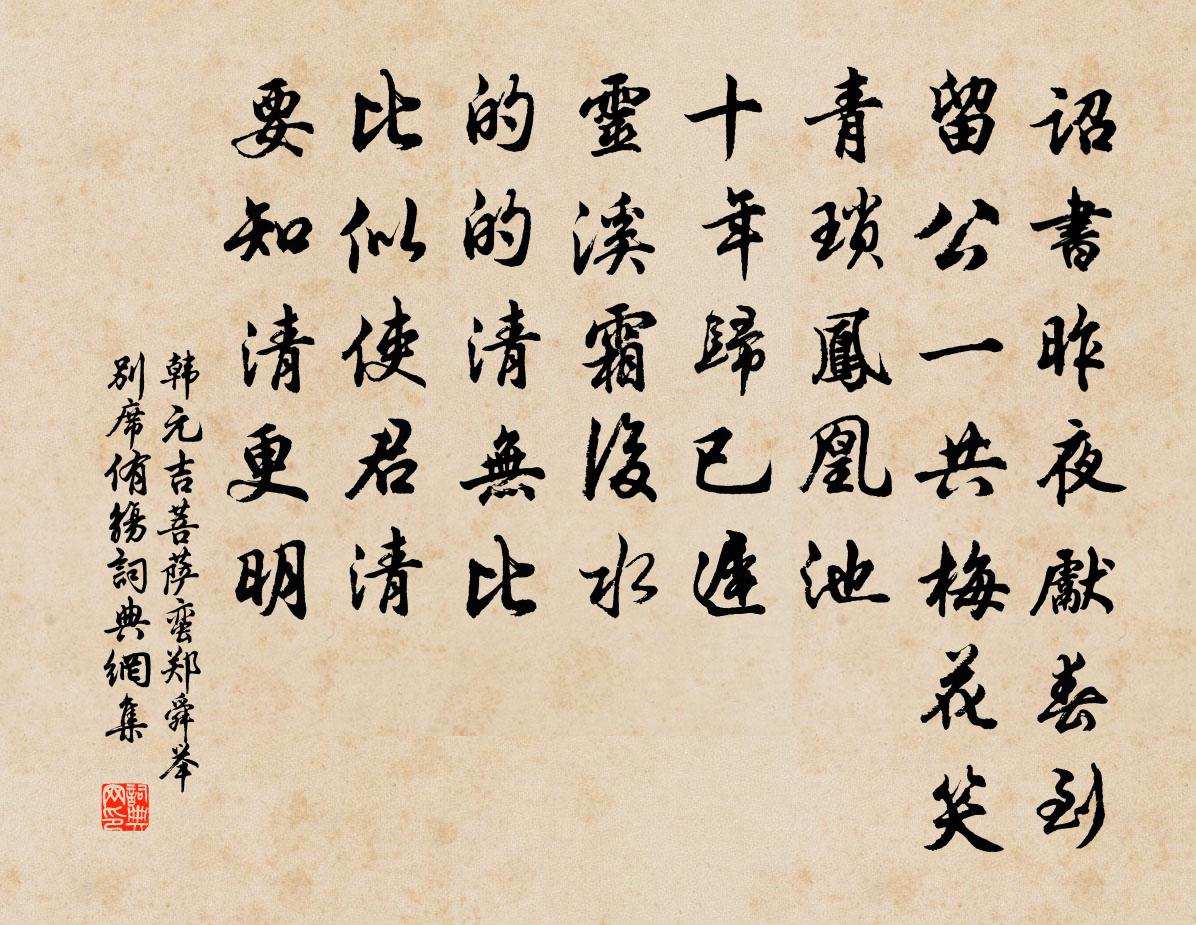 詔書昨夜獻春到
留公一共梅花笑
青瑣鳳凰池
十年歸已遲
靈溪霜後水
的的清無比
比似使君清
要知清更明
韩元吉菩萨蛮郑舜举
别席侑觞詞典網集
詞典
网印